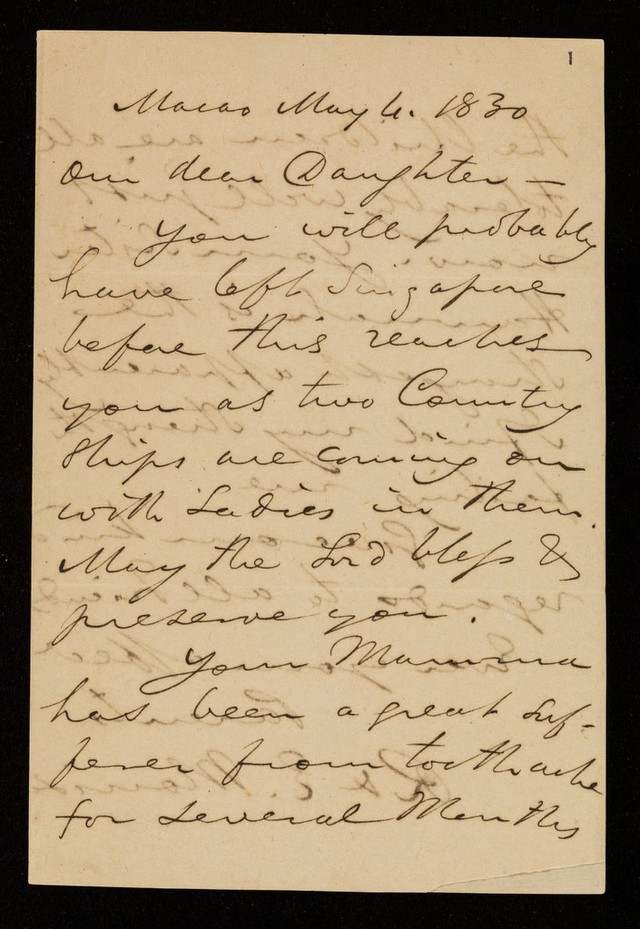 1
Macao May 6. 1830
Our dear Daughter —
You will probably
have left Singapore
before this reaches
you as two Country
Ships are coming on
with Ladies in them.
May the Lord bless &
preserve you.
Your Mamma
has been a great suf-
ferer from toothache
for several Months